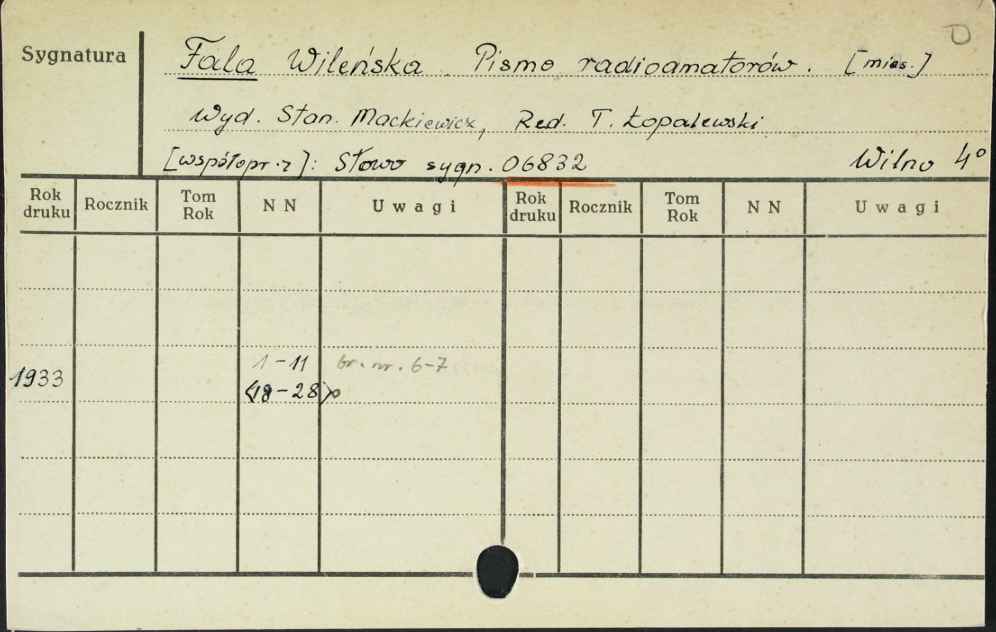 D
Sygnatura
Fala Wileńska. Pismo radioamatorów. [mies.]
Wyd. Stan. Mackiewicz, Red. T. Łopalewski
[współopr. z]: Słowo sygn. 06832 Wilno 4°
Rok druku Rocznik Tom Rok NN Uwagi Rok druku Rocznik Tom Rok NN Uwagi
1933 1-11 br. nr. 6-7
(18-28)